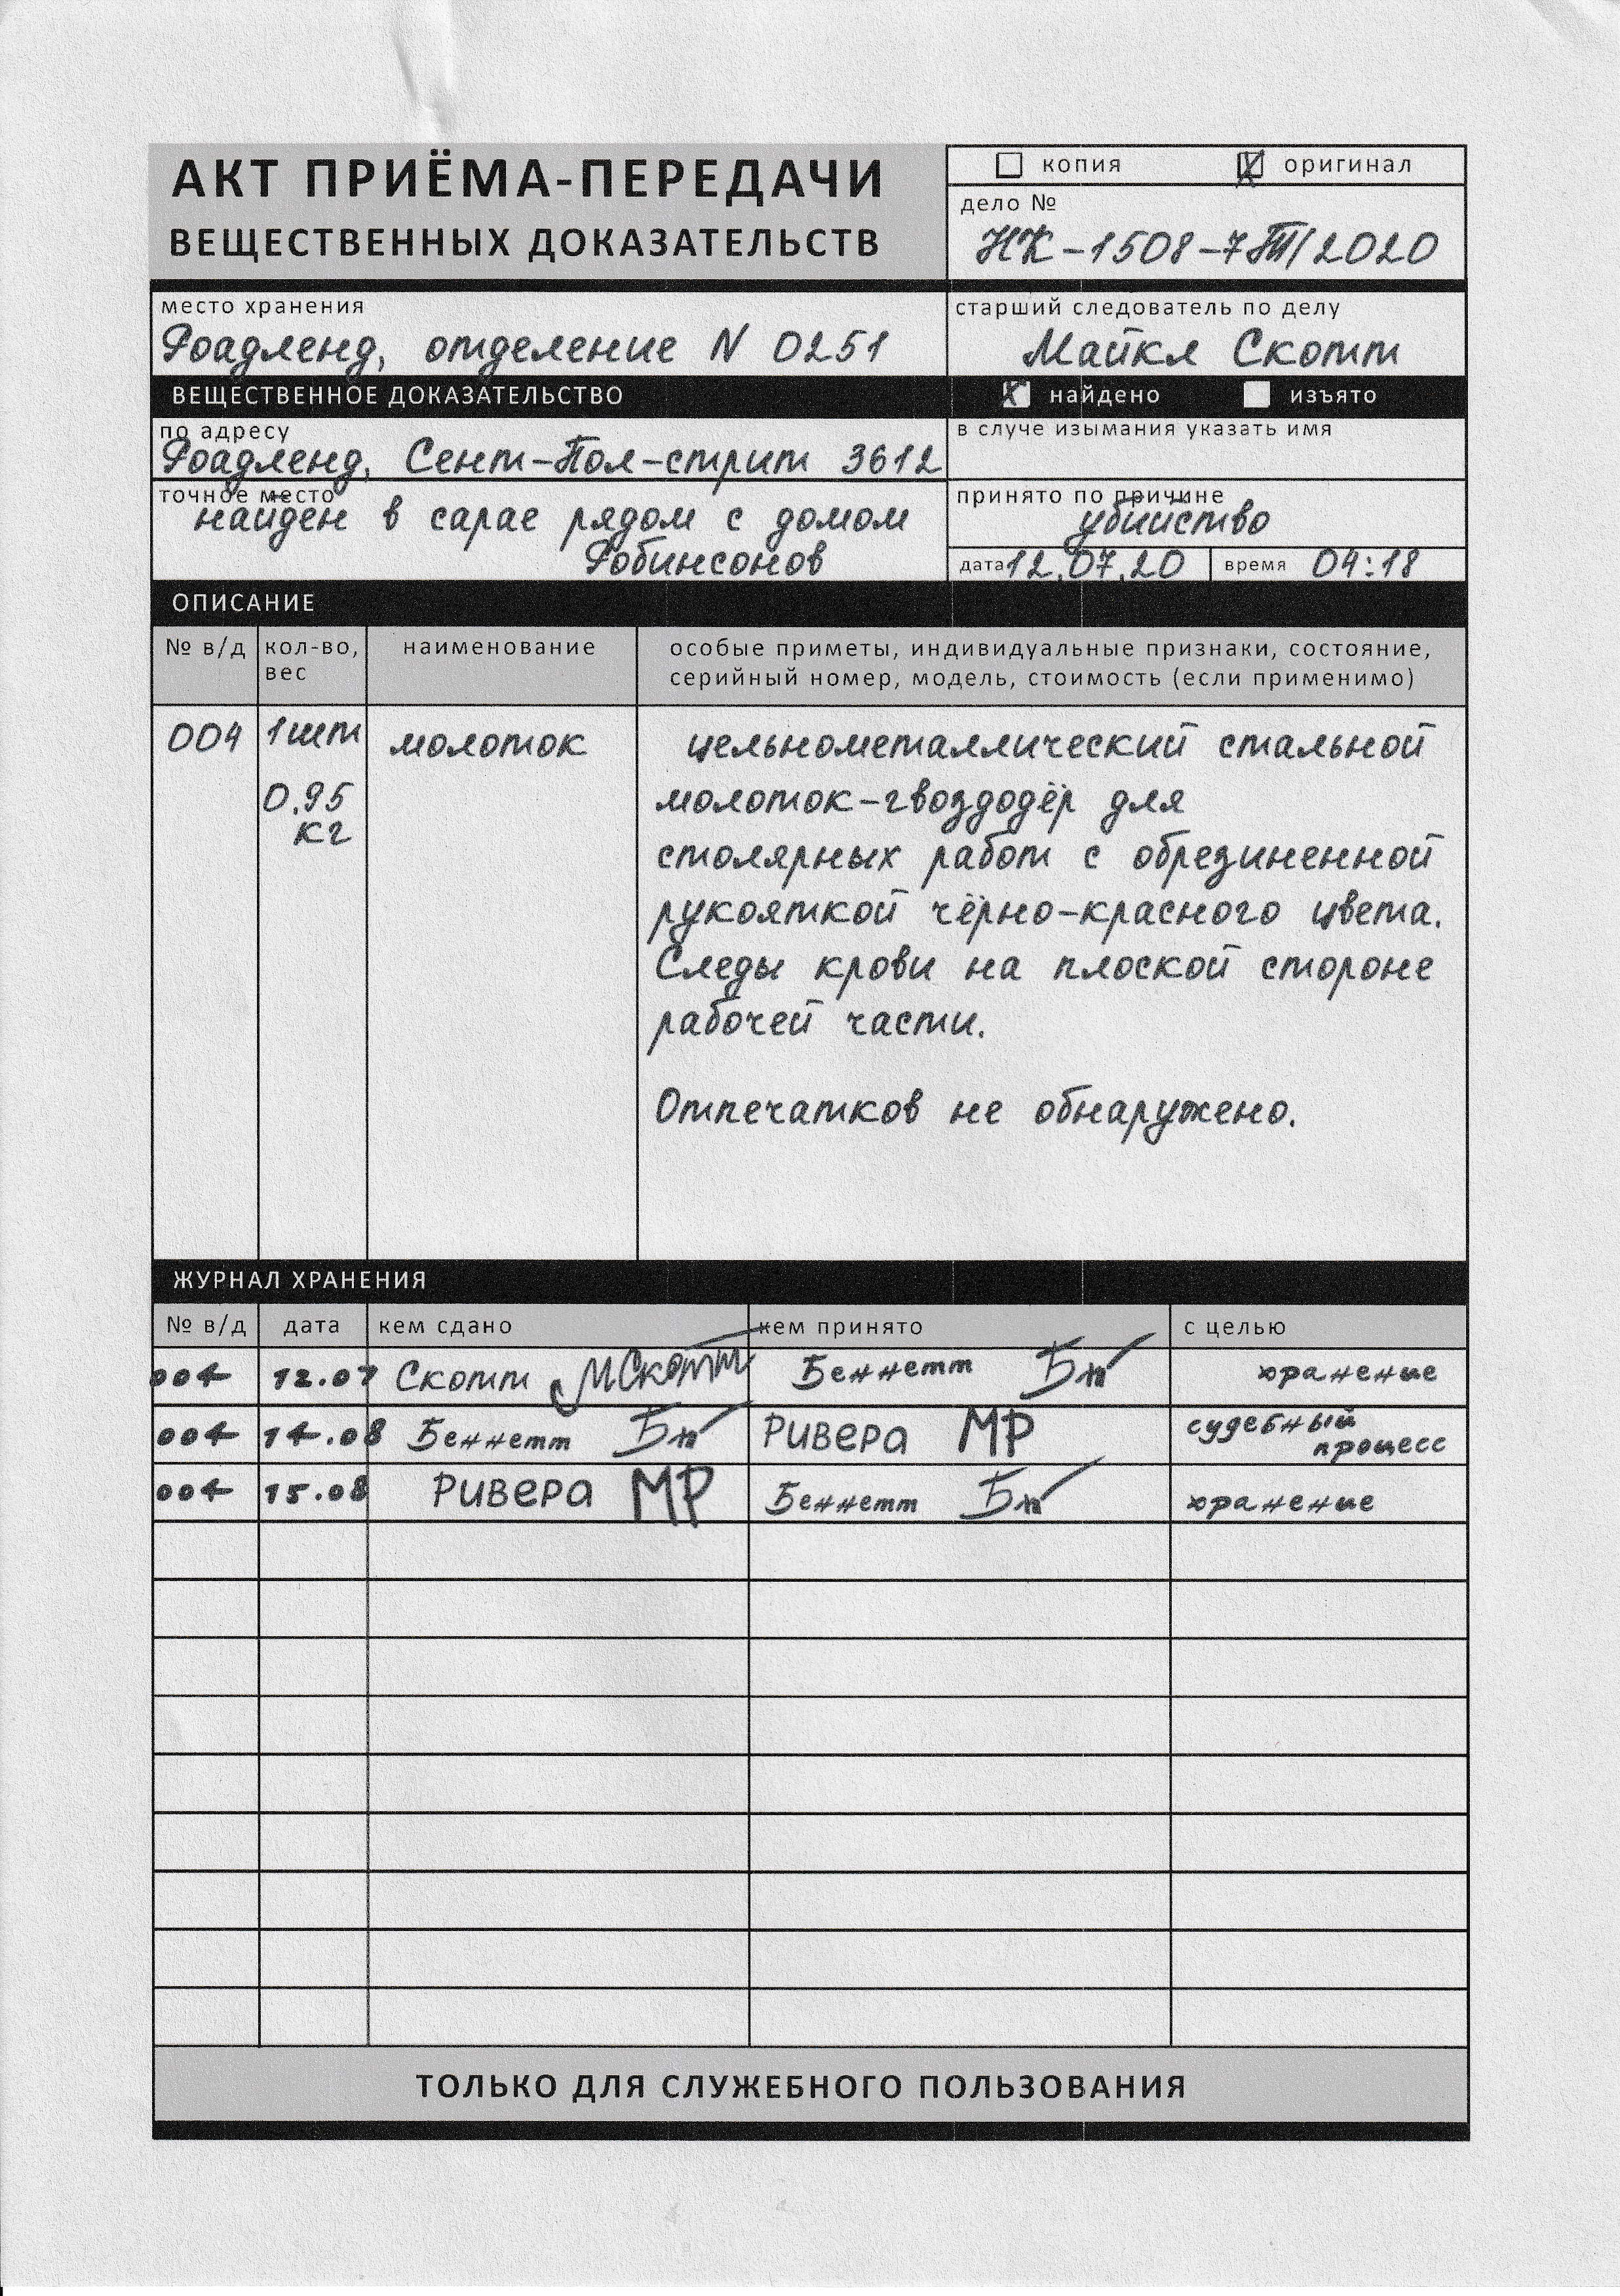 АКТ ПРИЁМА-ПЕРЕДАЧИ
ВЕЩЕСТВЕННЫХ ДОКАЗАТЕЛЬСТВ
копия оригинал
дело №
НК-1508-7ТП/2020
место хранения
Роадленд, отделение N 0251
старший следователь по делу
Майкл Скотт
ВЕЩЕСТВЕННОЕ ДОКАЗАТЕЛЬСТВО
найдено изъято
по адресу
Роадленд, Сент-Пол-стрит 3612
в случе изымания указать имя
точное место
найден в сарае рядом с домом
Робинсонов
принято по причине
убийство
дата 12.07.20 время 04:18
ОПИСАНИЕ
№ в/д кол-во, наименование особые приметы, индивидуальные признаки, состояние,
вес серийный номер, модель, стоимость (если применимо)
004 1шт молоток цельнометаллический стальной
0.95 молоток-гвоздодёр для
кг
столярных работ с обрезиненной
рукояткой чёрно-красного цвета.
Следы крови на плоской стороне
рабочей части.
Отпечатков не обнаружено.
ЖУРНАЛ ХРАНЕНИЯ
№ в/д дата кем сдано кем принято с целью
004 12.07 Скотт МСкотт Беннетт Бт хранение
004 14.08 Беннетт Бт Ривера МР судебный
процесс
004 15.08 Ривера МР Беннетт Бт хранение
ТОЛЬКО ДЛЯ СЛУЖЕБНОГО ПОЛЬЗОВАНИЯ